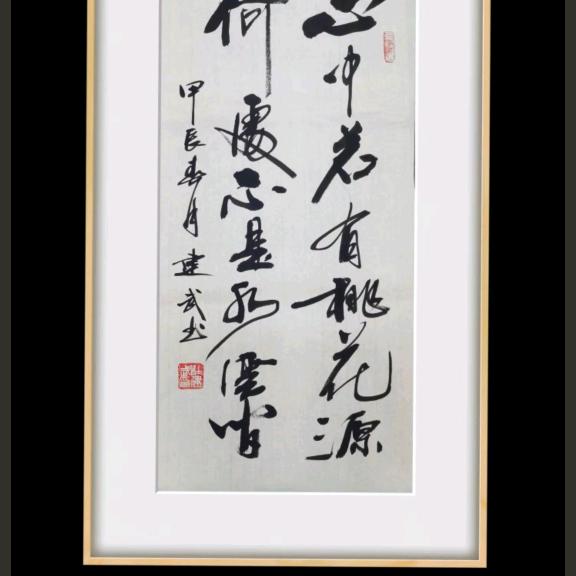 心中若有桃花源
何處不是水雲間
甲辰春月 建武书